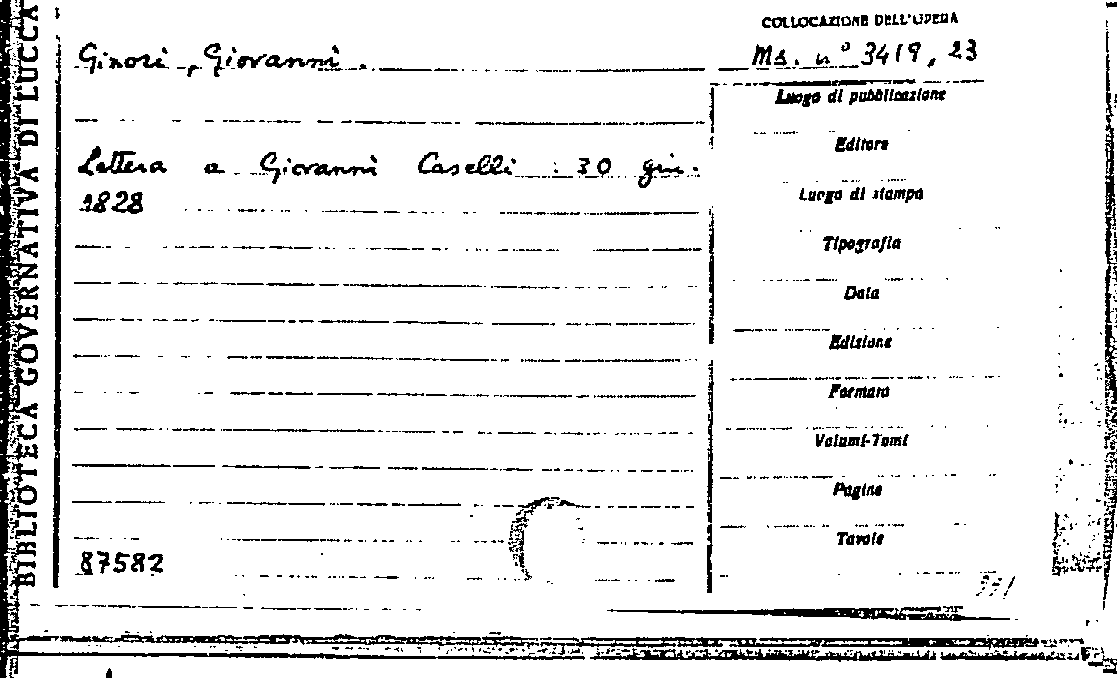 BIBLIOTECA GOVERNATIVA DI LUCCA
COLLOCAZIONE DELL'OPERA
Ginori, Giovanni.
Ms. n° 3419, 23
Luogo di pubblicazione
Editore
Lettera a Giovanni Caselli : 30 giu.
1828
Luogo di stampa
Tipografia
Data
Edizione
Formato
Volumi-Tomi
Pagine
Tavole
87582